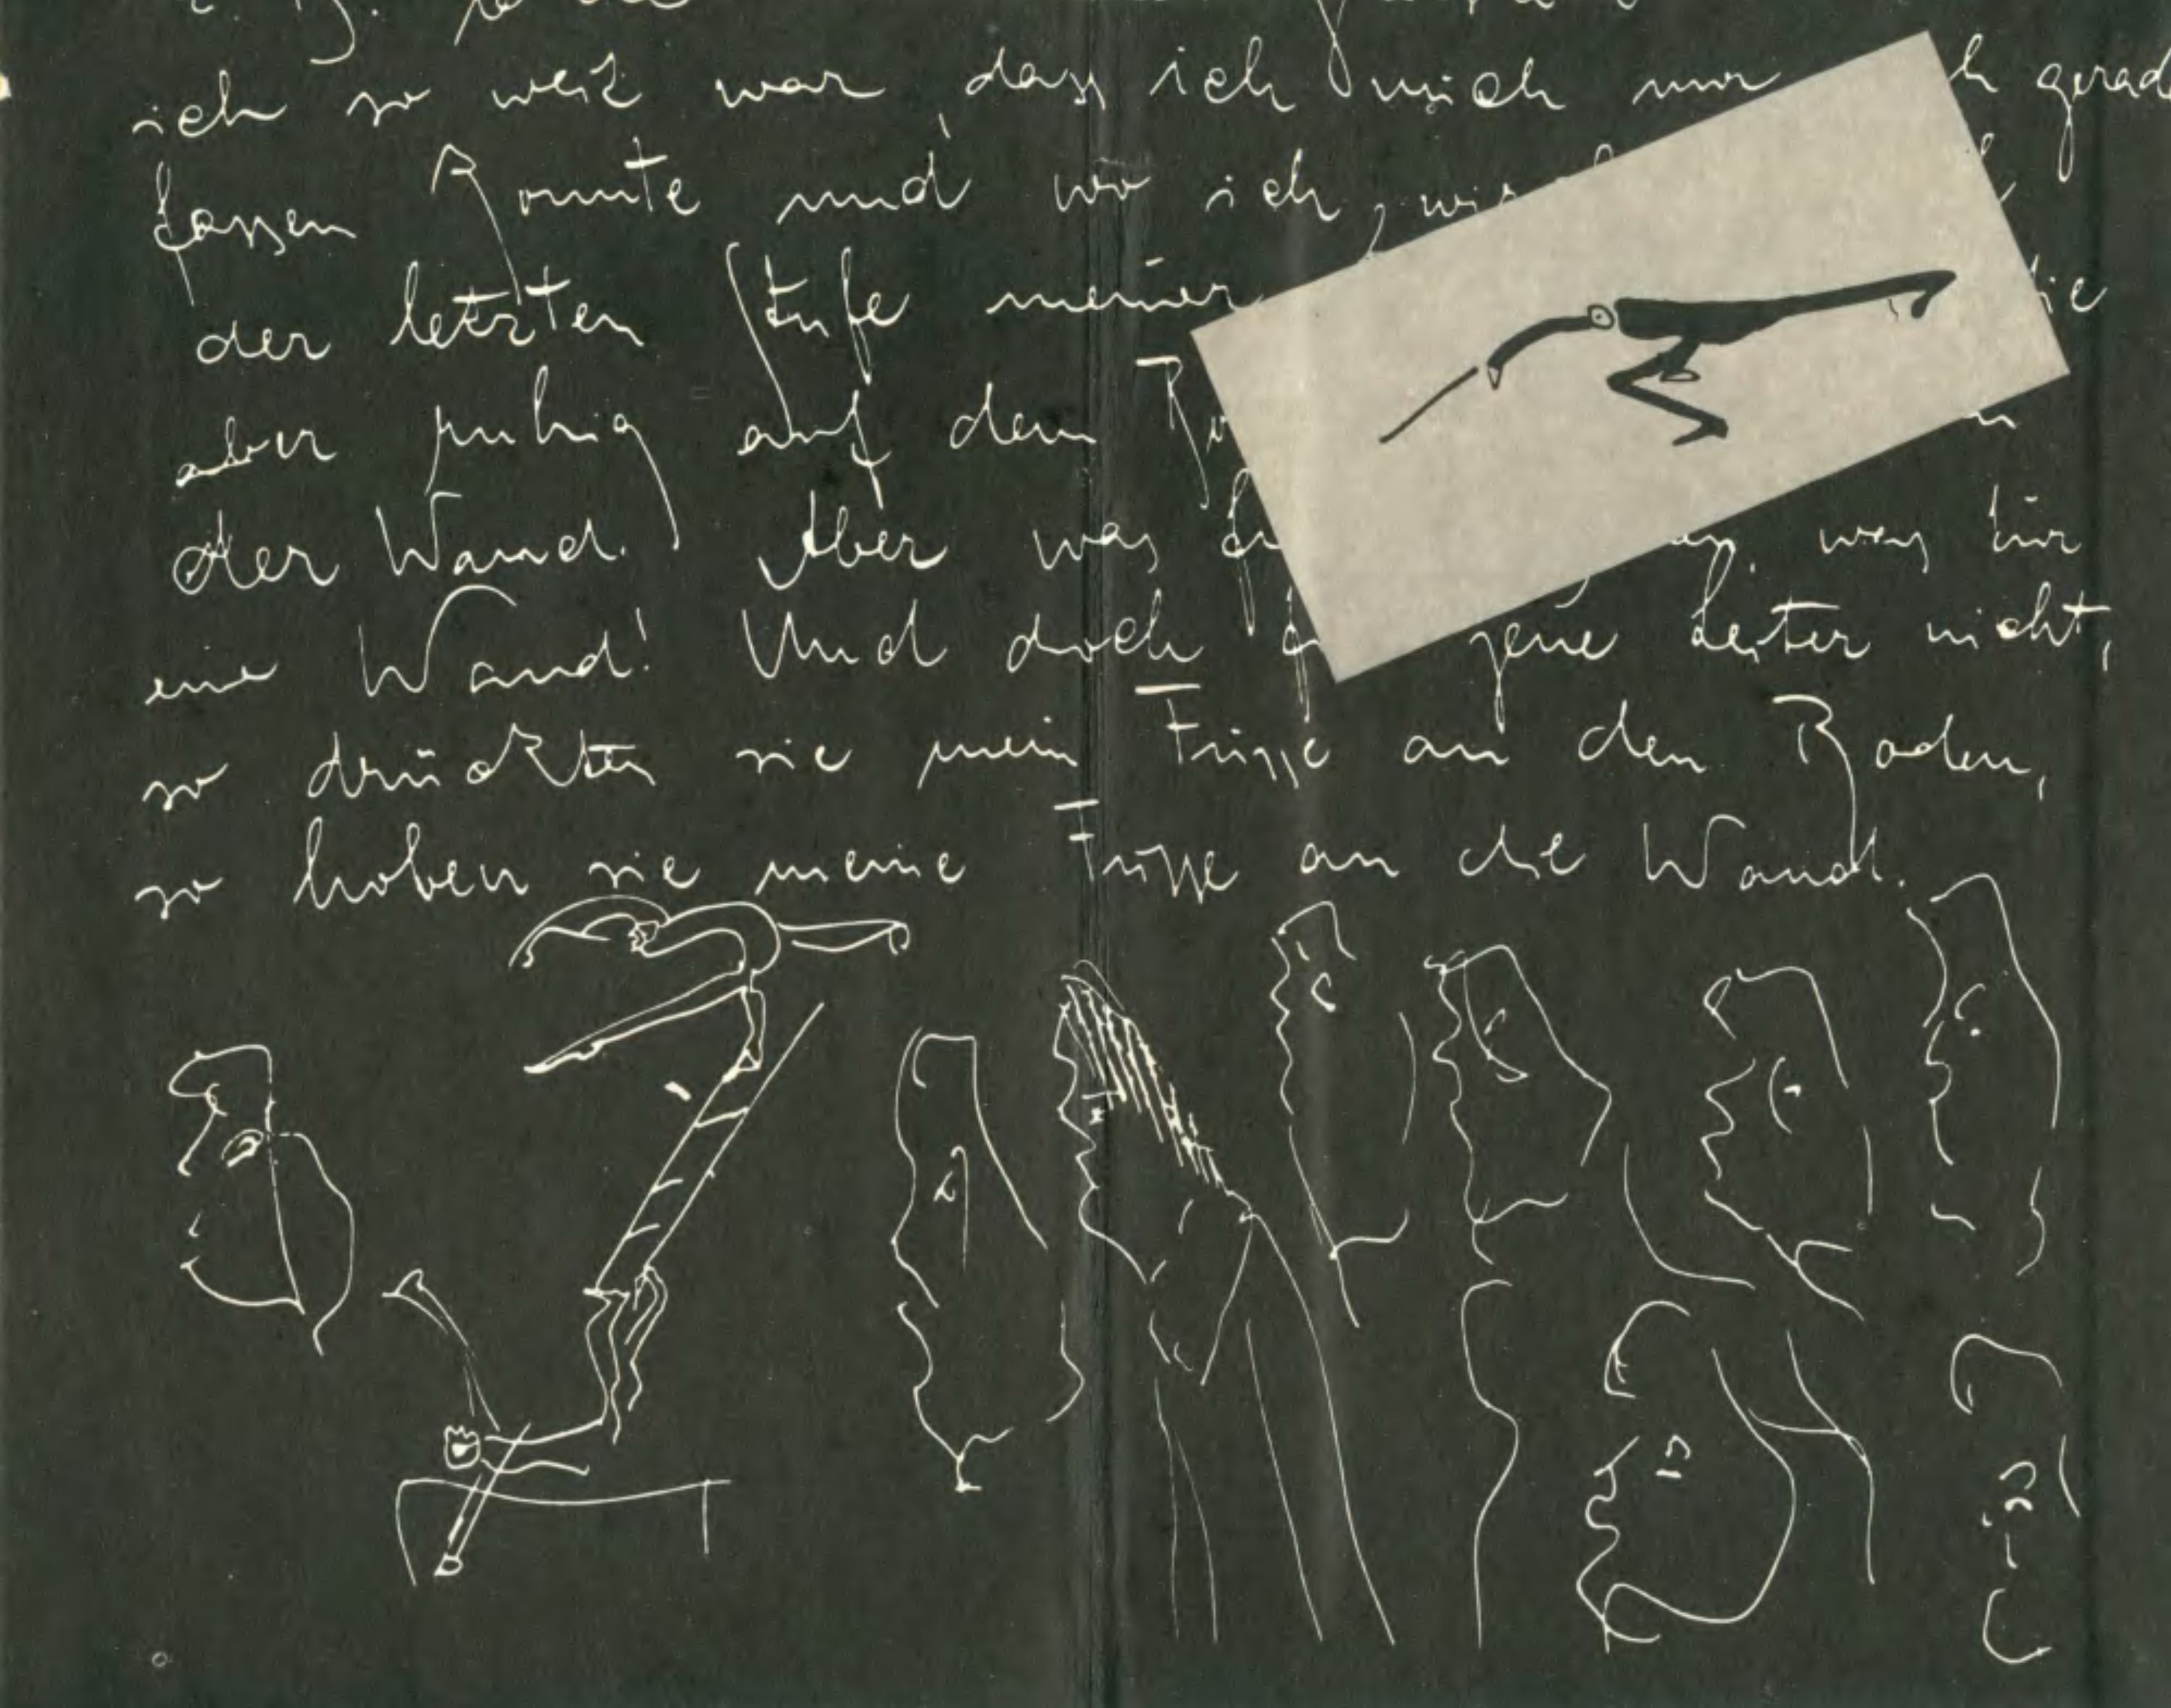 ich so weit war, dass ich mich nur gerad
fassen konnte und wo ich,
der letzten Stufe meiner
aber ruhig auf dem
der Wand. Aber was was für
eine Wand! Und doch jene Leiter nicht,
so drückten sie mein Füsse an den Boden,
so hoben sie meine Füsse an die Wand.